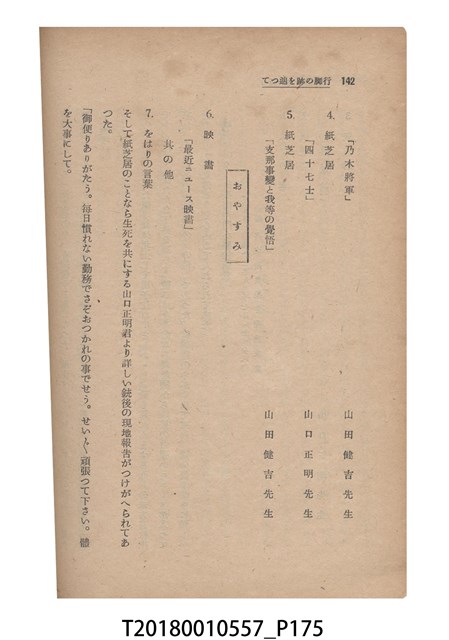 142 行脚の跡を辿つて
「乃木將軍」 山田健吉先生
4. 紙芝居
「四十七士」 山口正明先生
5. 紙芝居
「支那事變と我等の覺悟」 山田健吉先生
おやすみ
6. 映畫
「最近ニユース映畫」
其の他
7. をはりの言葉
そして紙芝居のことなら生死を共にする山口正明君より詳しい銃後の現地報告がつけがへられてあ
つた。
「御便りありがたう。毎日慣れない勤務でさぞおつかれの事でせう。せい〴〵頑張つて下さい。體
を大事にして。
T20180010557_P175